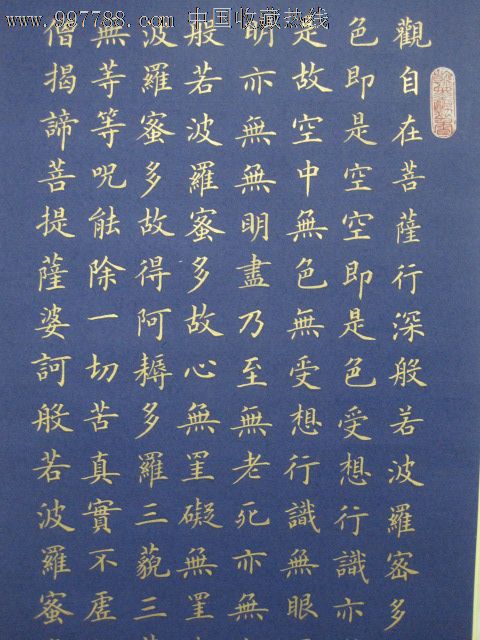 www.997788.com 中国收藏热线
觀自在菩薩行深般若波羅密多
色即是空空即是色受想行識亦
是故空中無色無受想行識無眼
明亦無無明盡乃至無老死亦無
般若波羅蜜多故心無罣礙無罣
波羅蜜多故得阿耨多羅三藐三
無等等呪能除一切苦真實不虛
僧揭諦菩提薩婆訶般若波羅蜜